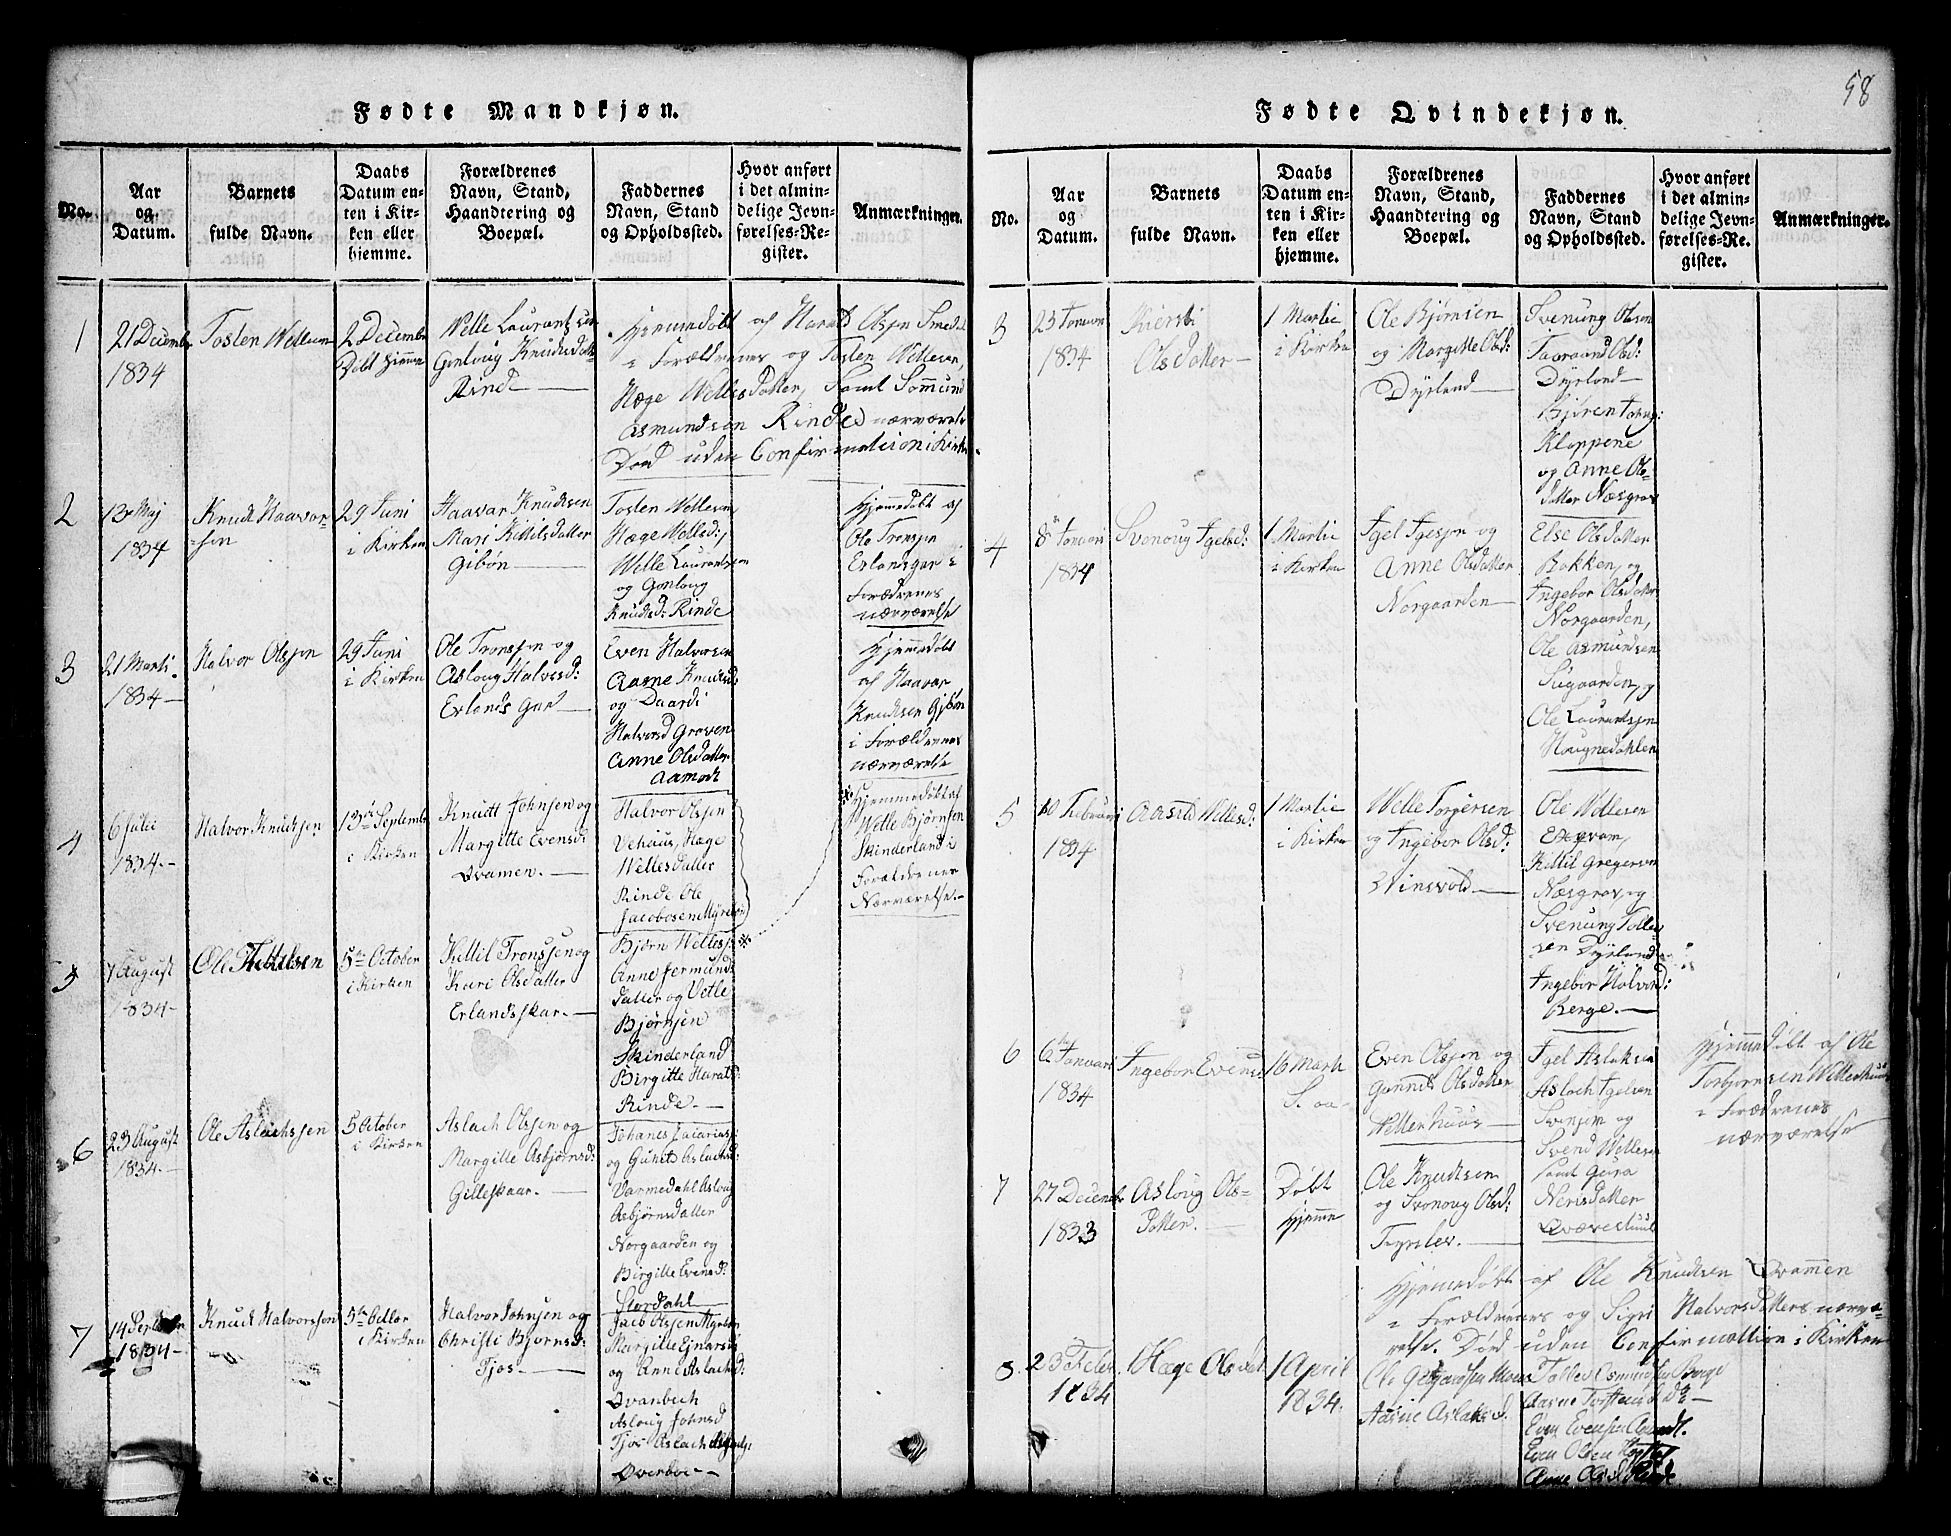 58
Fødte Mandkjøn.
No.
Aar
og
Datum.
Barnets
fulde Navn.
Daabs
Datum en-
ten i Kir-
ken eller
hjemme.
Forældrenes
Navn, Stand,
Haandtering og
Boepæl.
Faddernes
Navn, Stand
og Opholdssted.
Hvor anført
i det almin-
delige Jevn-
førelses-Re-
gister.
Anmærkninger.
1
21 Decembr
1834
Tosten Wellesen
2 Decembr
Døbt Hjemme
Welle Laurantsen
Gonloug Knudsdatt
Rinde
Hjemmedøbt af Harald Olssen
i Forældrenes og Tosten Wellesen,
Hæge Wellesdatter, Samt Sommund
Asmundsen Rindes nærværelse
Død uden Confirmation i Kirken
2
13 Maj
1834
Knudt Haavor-
sen
29 Juni
i Kirken
Haavar Knudsen
Mari Kittilsdatter
Gibøn
Tosten Wellesen
Hæge Wellesd:
Welle Laurantsen
og Gonloug
Knudsd: Rinde
Hjemmedøbt af
Ole Tronsen
Erlansgar i
Forældrenes
nærværelse
3
21 Marti
1834
Halvor Olssen
29 Juni
i Kirken
Ole Tronssen og
Asloug Halvorsd:
Erlands Gar
Even Halvorsen
Aasne Knudsd:
og Daardi
Halvorsd Groven
Anne Olsdatter
Aamodt
Hjemmedøbt
af Haavar
Knudsen Gibøn
i Forældrenes
nærværelse
4
6 Julii
1834
Halvor Knudsen
13de Septembr
i Kirken
Knudt Johnsen og
Margitte Evensd:
Qvamen.
Halvor Olssen
Vehuus, Hæge
Wellesdatter
Rinde Ole
Jacobosen Myrebøe
Hjemmedøbt af
Welle Bjørnsen
Skinderland i
Forældrenes
Nærværelse.
5
7 August
1834
Ole Kittilsen
5te October
i Kirken
Kittil Tronssen og
Kari Olsdatter
Erlandsskar.
Bjørn Wellesen
Anne Jermunds
datter og Vetle
Bjørnsen
Skinderland
Birgitte Haralsd:
Rinde.
6
23 August
1834
Ole Aslachssen
5 October
i Kirken
Aslach Olssen og
Margitte Asbjørnsd:
Gilleskaar.
Johanes
og Gunild Aslachsd:
Varmedahl Asloug
Asbjørnsdatter
Norgaarden og
Birgitte Evensd:
Stordahl
7
14 Septembr
1834
Knudt Halvorssen
5te Octor
i Kirken
Halvor Johnsen og
Christi Bjørnsd:
Tjos
Jacob Olssen Myrebøe
Margitte Ejnarsd
og Anne Aslachsd:
Qvanbech
Asloug Johnsd
Tjos Aslach
Overboe
Fødte Qvindekjøn.
No.
Aar
og
Datum.
Barnets
fulde Navn.
Daabs
Datum en-
ten i Kir-
ken eller
hjemme.
Forældrenes
Navn, Stand,
Haandtering og
Boepæl.
Faddernes
Navn, Stand
og Opholdssted.
Hvor anført
i det almin-
delige Jevn-
førelses-Re-
gister.
Anmærkninger.
3
23 Januari
1834
Kiersti
Olsdatter
1 Martie
i Kirken
Ole Bjørnsen
og Margitte Olsd:
Dyrland
Svenung Olson
Taaraand Olsd:
Dyrland
Bjøren
Kloppene
og Anne Ols-
datter Næsgrav
4
8 Januari
1834
Svenoug Igelsd:
1 Martie
i Kirken
Igel Igessen og
Anne Olsdatter
Norgaarden
Else Olsdatter
Bakken, og
Ingebor Olsdatter
Norgaarden,
Ole Asmundsen
Suigaarden, og
Ole Laurantsen
Hougnedahlen
5
10 Februari
1834
Aasild Wellesd:
1 Martie
i Kirken
Welle Torgersen
og Ingebor Olsd:
Winsvold
Ole Wellesen
Kittil Gregersen
Næsgrav, og
Svenung Tolle-
sen Dyrland
Ingebor Halvorsd:
Berge.
6
6te Januari
1834
Ingebor Evensd
16 Marti
S. aa
Even Olssen og
Gunnild Olsdatter
Wellenhuus
Igel Aslaksen
Aslach Igelsen
og
Svend Wellesen
samt Gura
Nerisdatter
Qværestuul
Hjemmedøbt af Ole
Torbjørnsen Wellenhuus
i Forældrenes
nærværelse
7
27 Decembr
1833
Asloug Ols-
datter.
Døbt
Hjemme
Ole Knudsen
og Svonoug Olsd:
Hjemmedøbt af Ole Knudsen Qvammen
i Forældrenes og Sigri Halvorsdatters nærvæ-
relse. Død uden Confirmattion i Kirken
8
23 Feber
1834
Hæge Olsdat
1 April
1834.
Aasne Aslaksd.
Aasne
Even Evensen
Even Olsen
Anne